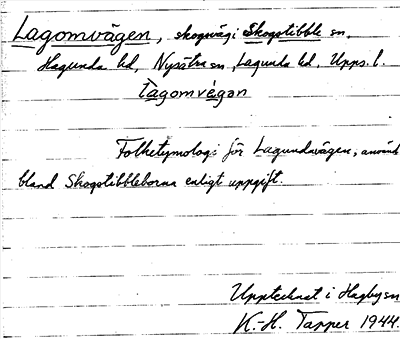 Lagomvägen, skogsväg i Skogstibble sn,
Hagunda hd, Nysätra sn, Lagunda hd, Upps. l.
Lagomvégan
Folketymologi för Lagundavägen, använt
bland Skogstibbleborna enligt uppgift.
Upptecknat i Hagby sn
K.-H. Tapper 1944.